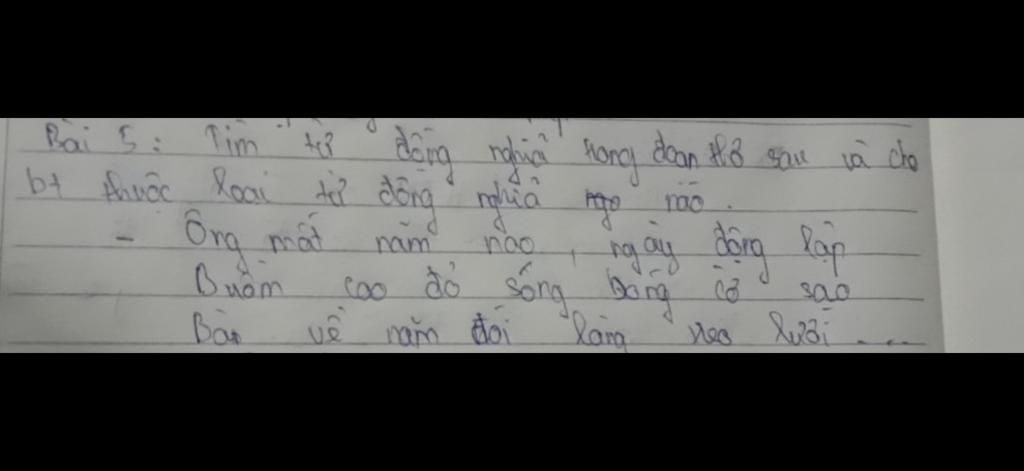 Bài 5: Tìm từ đồng nghĩa trong đoạn thơ sau và cho
bt thuộc loại từ đồng nghĩa nào.
- Ông mất năm nao, ngày độg lập
Buồm cao đỏ sống bóng cờ sao
Bà về năm đói làng xeo lưới ....